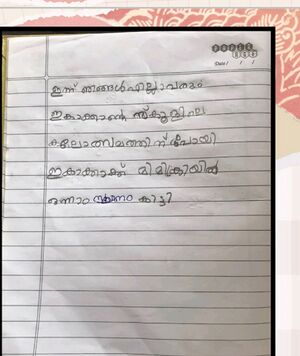 Date / / /
ഇന്ന് ഞങ്ങൾ എല്ലാവരും
ഇകാക്കാന്റെ സ്കൂളിലെ
കലോത്സവത്തിന് പോയി
ഇകാക്കാക്ക് മിമിക്രിയിൽ
ഒന്നാം സ്ഥാനം കിട്ടി